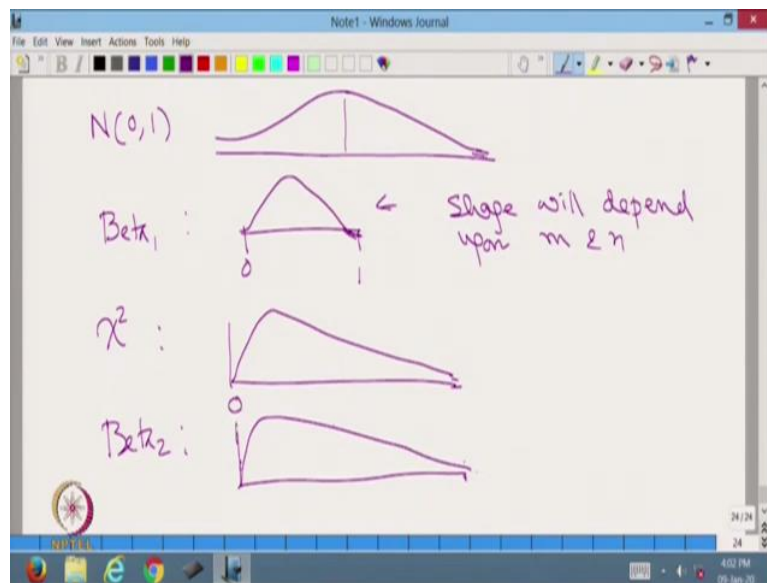 Note1 - Windows Journal
File Edit View Insert Actions Tools Help
B I
N(0,1)
Beta₁ : ← Shape will depend
upon m & n
0 1
χ² :
0
Beta₂ :
NPTEL
24/24
24
4:02 PM
09-Jan-20